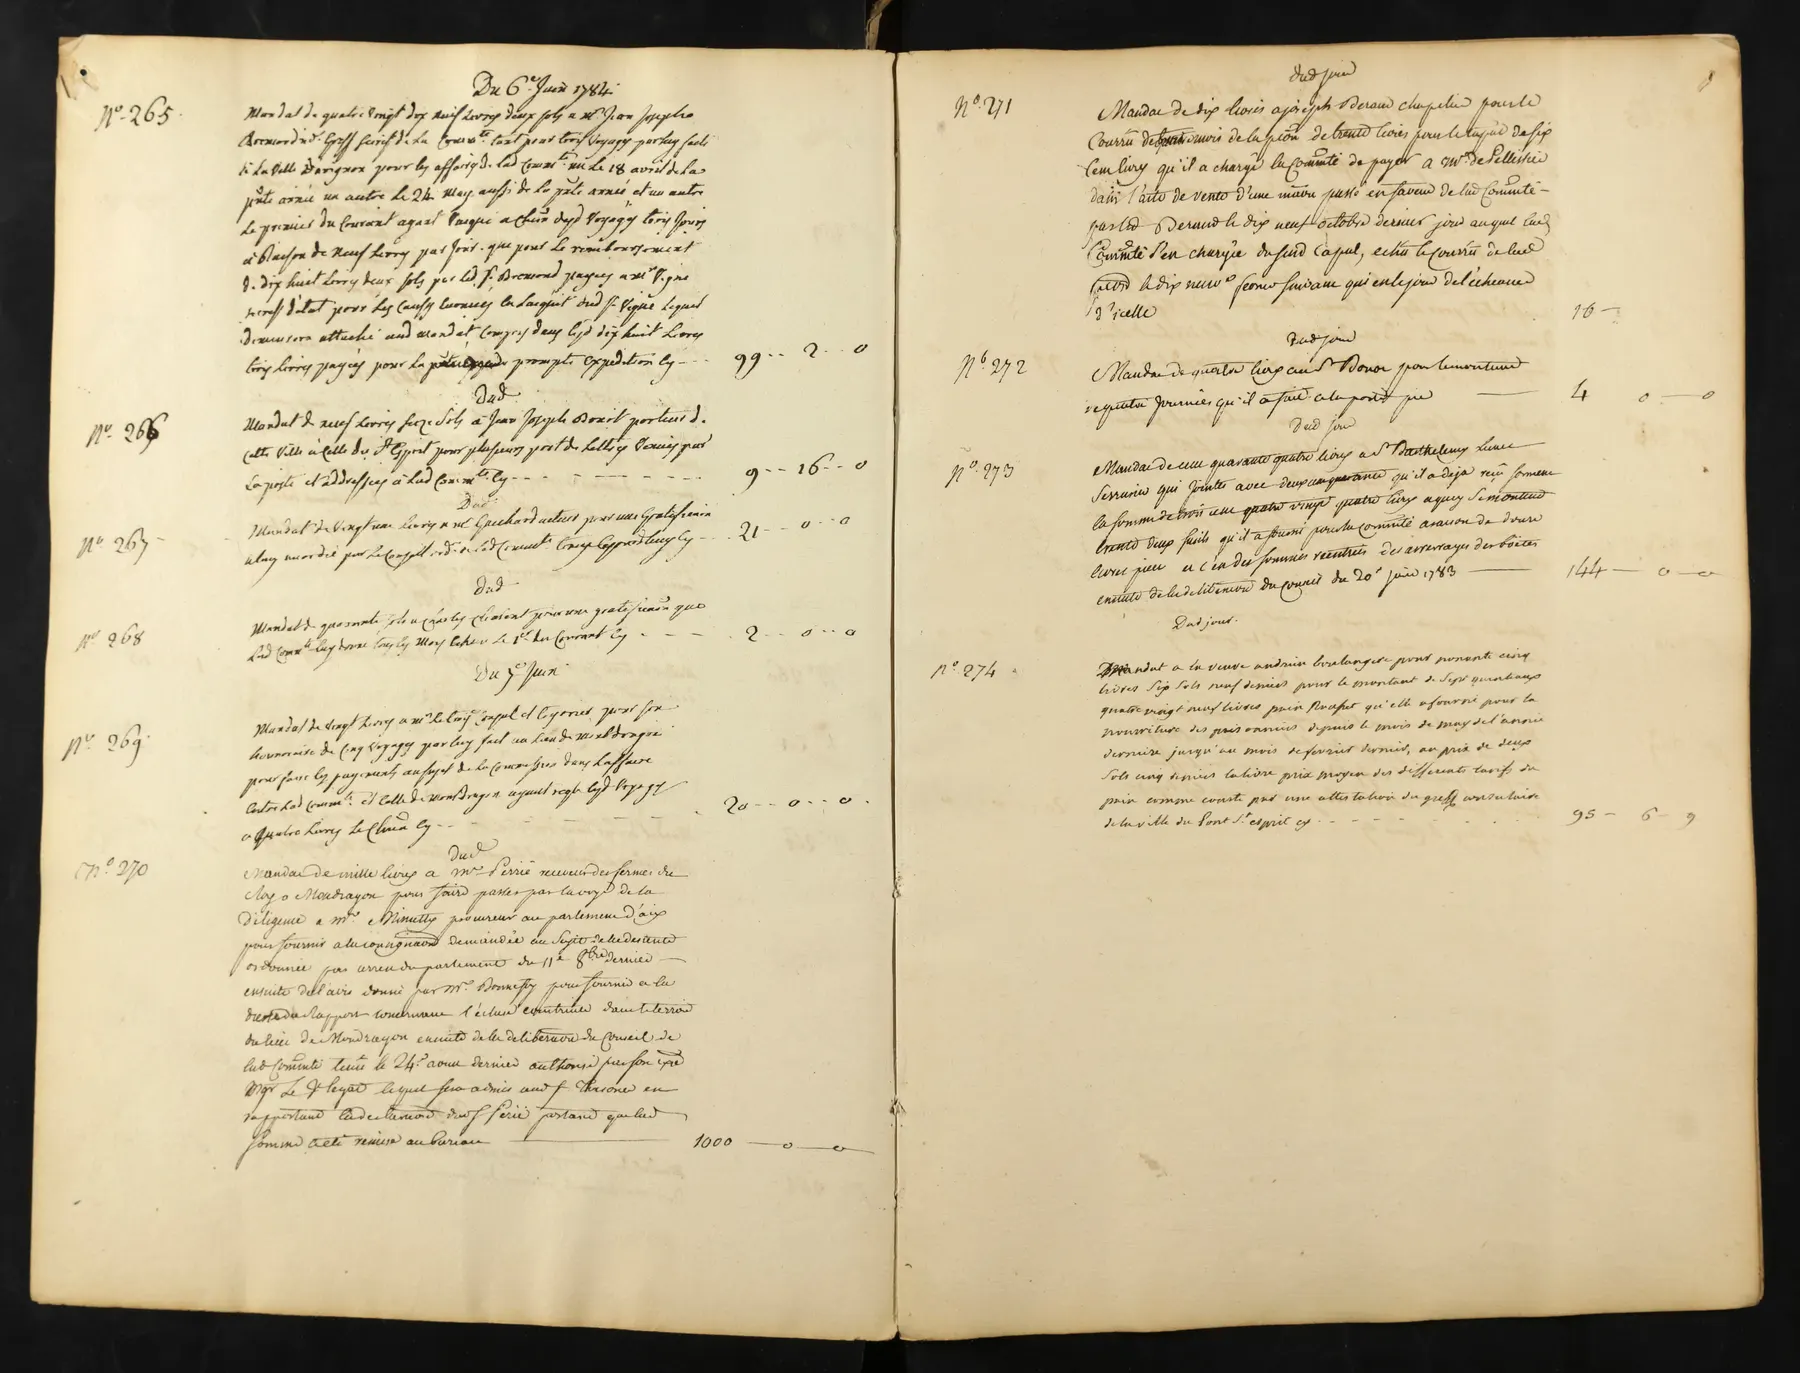 Du 6e. Juin 1784.
No. 265. Mandat de quatre vingt dix neuf Livres deux sols a Mr. Jean Joseph
Bremond nre. Greff. secret. de la Commte. tant pour trois Voyages par luy faits
à la Ville d'avignon pour les affaires de lad. Commte. un Le 18 avril de la
pnte année un autre Le 24 May aussi de la pnte année et un autre
Le premier du Courant ayant Vacqué a Chun desd. Voyages trois Jours
a Raison de neuf Livres par Jour. que pour Le remboursement
de dix huit Livres deux sols par led. Sr. Bremond payées a Mr. Vigne
pour Les Causes enoncées en Lacquit dud. Sr. Vigne Lequel
demeurera attaché aud. Mandat Compris dans lesd. dix huit Livres
trois Livres payées pour la prompte Expedition Cy --- 99 -- 2 -- 0
Dud.
No. 266 Mandat de neuf Livres seize Sols a Jean Joseph Benoit porteur de
Cette Ville à Celle du St. Esprit pour plusieurs port de Lettres Venues par
La poste et addressées à Lad. Commte. Cy --- 9 -- 16 -- 0
Dud.
No. 267 Mandat de Vingt une Livres a Mr. Guichard pour une Gratification
a luy accordée par Le Conseil ord. de Lad. Commte. Cy --- 21 -- 0 -- 0
Dud.
No. 268 Mandat de quarante sols a Charles Clement pour une gratification que
Lad. Commte. luy donne tous les Mois Echeu Le 1er. du Courant Cy --- 2 -- 0 -- 0
Du 7e. Juin
No. 269. Mandat de Vingt Livres a Mr. Consul et tresorier pour son
honnoraire de Cinq Voyages par luy fait au Lieu de Mondragon
pour faire les payements au sujet de la Commission dans Laffaire
Entre Lad. Commte. et Celle de Mondragon ayant reglé lesd. Voyages
a Quatre Livres Le Chun Cy --- 20 -- 0 -- 0.
Dud.
No. 270 Mandat de mille livres a Mr. Perrié receveur des fermes du
Roy a Mondragon pour faire passer par la voye de la
diligence a Mr. Minutty procureur au parlement d'aix
pour fournir a la consignaon demandée au sujet de la descente
ordonnée par arrest du parlement du 11e 8bre dernier
ensuite de l'avis donné par Mr. Bonnefoy pour fournir a la
Rapport concernant l'écluse construite dans le terroir
du lieu de Mondragon ensuite de la deliberaon du Conseil de
lad. Commté tenu le 24e aoust dernier authorisé par son Exce
Mgr Le V. legat laquel sera admis aud. Sr Thresorier en
rapportant la declaraon dud. Sr Perié portant que lad.
somme a eté remise au bureau — 1000 — 0 — 0
dud jour
No. 271 Mandat de dix livres a joseph Beraud chapelier pour le
Courru de mois de la pion de trente livres pour le capal de six
Cent livres qu'il a chargé la Commté de payer a Mr. de Pellissier
dans l'acte de vente d'une maison passé en faveur de lad. Commté
par led. Beraud le dix neuf octobre dernier jour auquel lad.
Commté s'en chargea dususd. Capal, echu le courru de lad.
pion le dix neuf fevrier suivant qui est le jour de l'échéance
d'icelle 16 —
Dud jour
No. 272 Mandat de quatre livres au Sr Bonot pour le montant
de quatre Journées qu'il a fait a la porte — 4 0 — 0
Dud jour
No. 273 Mandat de cent quarante quatre livres a Sr Barthelemy
Serrurier qui jointes avec deux cent quarante qu'il a deja reçu forment
la somme de trois cent quatre vingt quatre livres a quoy se montent
trente deux fusils qu'il a fourni pour la Commté a raison de douze
livres piece et c'en des sommes rentrées des arrerages des boites
ensuite de la deliberaon du Conseil du 20e juin 1783 — 144 — 0 — 0
Dud jour.
No. 274 Mandat a la veuve andrieu boulangere pour nonante cinq
livres six sols neuf deniers pour le montant de sept quintaux
quatre vingt neuf livres pain Rousset qu'elle a fourni pour la
nourriture des prisonniers depuis le mois de may de l'année
derniere jusqu'au mois de fevrier dernier, au prix de deux
sols cinq deniers la livre prix moyen des differents tarifs du
pain comme conste par une attestation du greff. consulaire
de la ville du Pont St. esprit cy --- 95 — 6 — 9